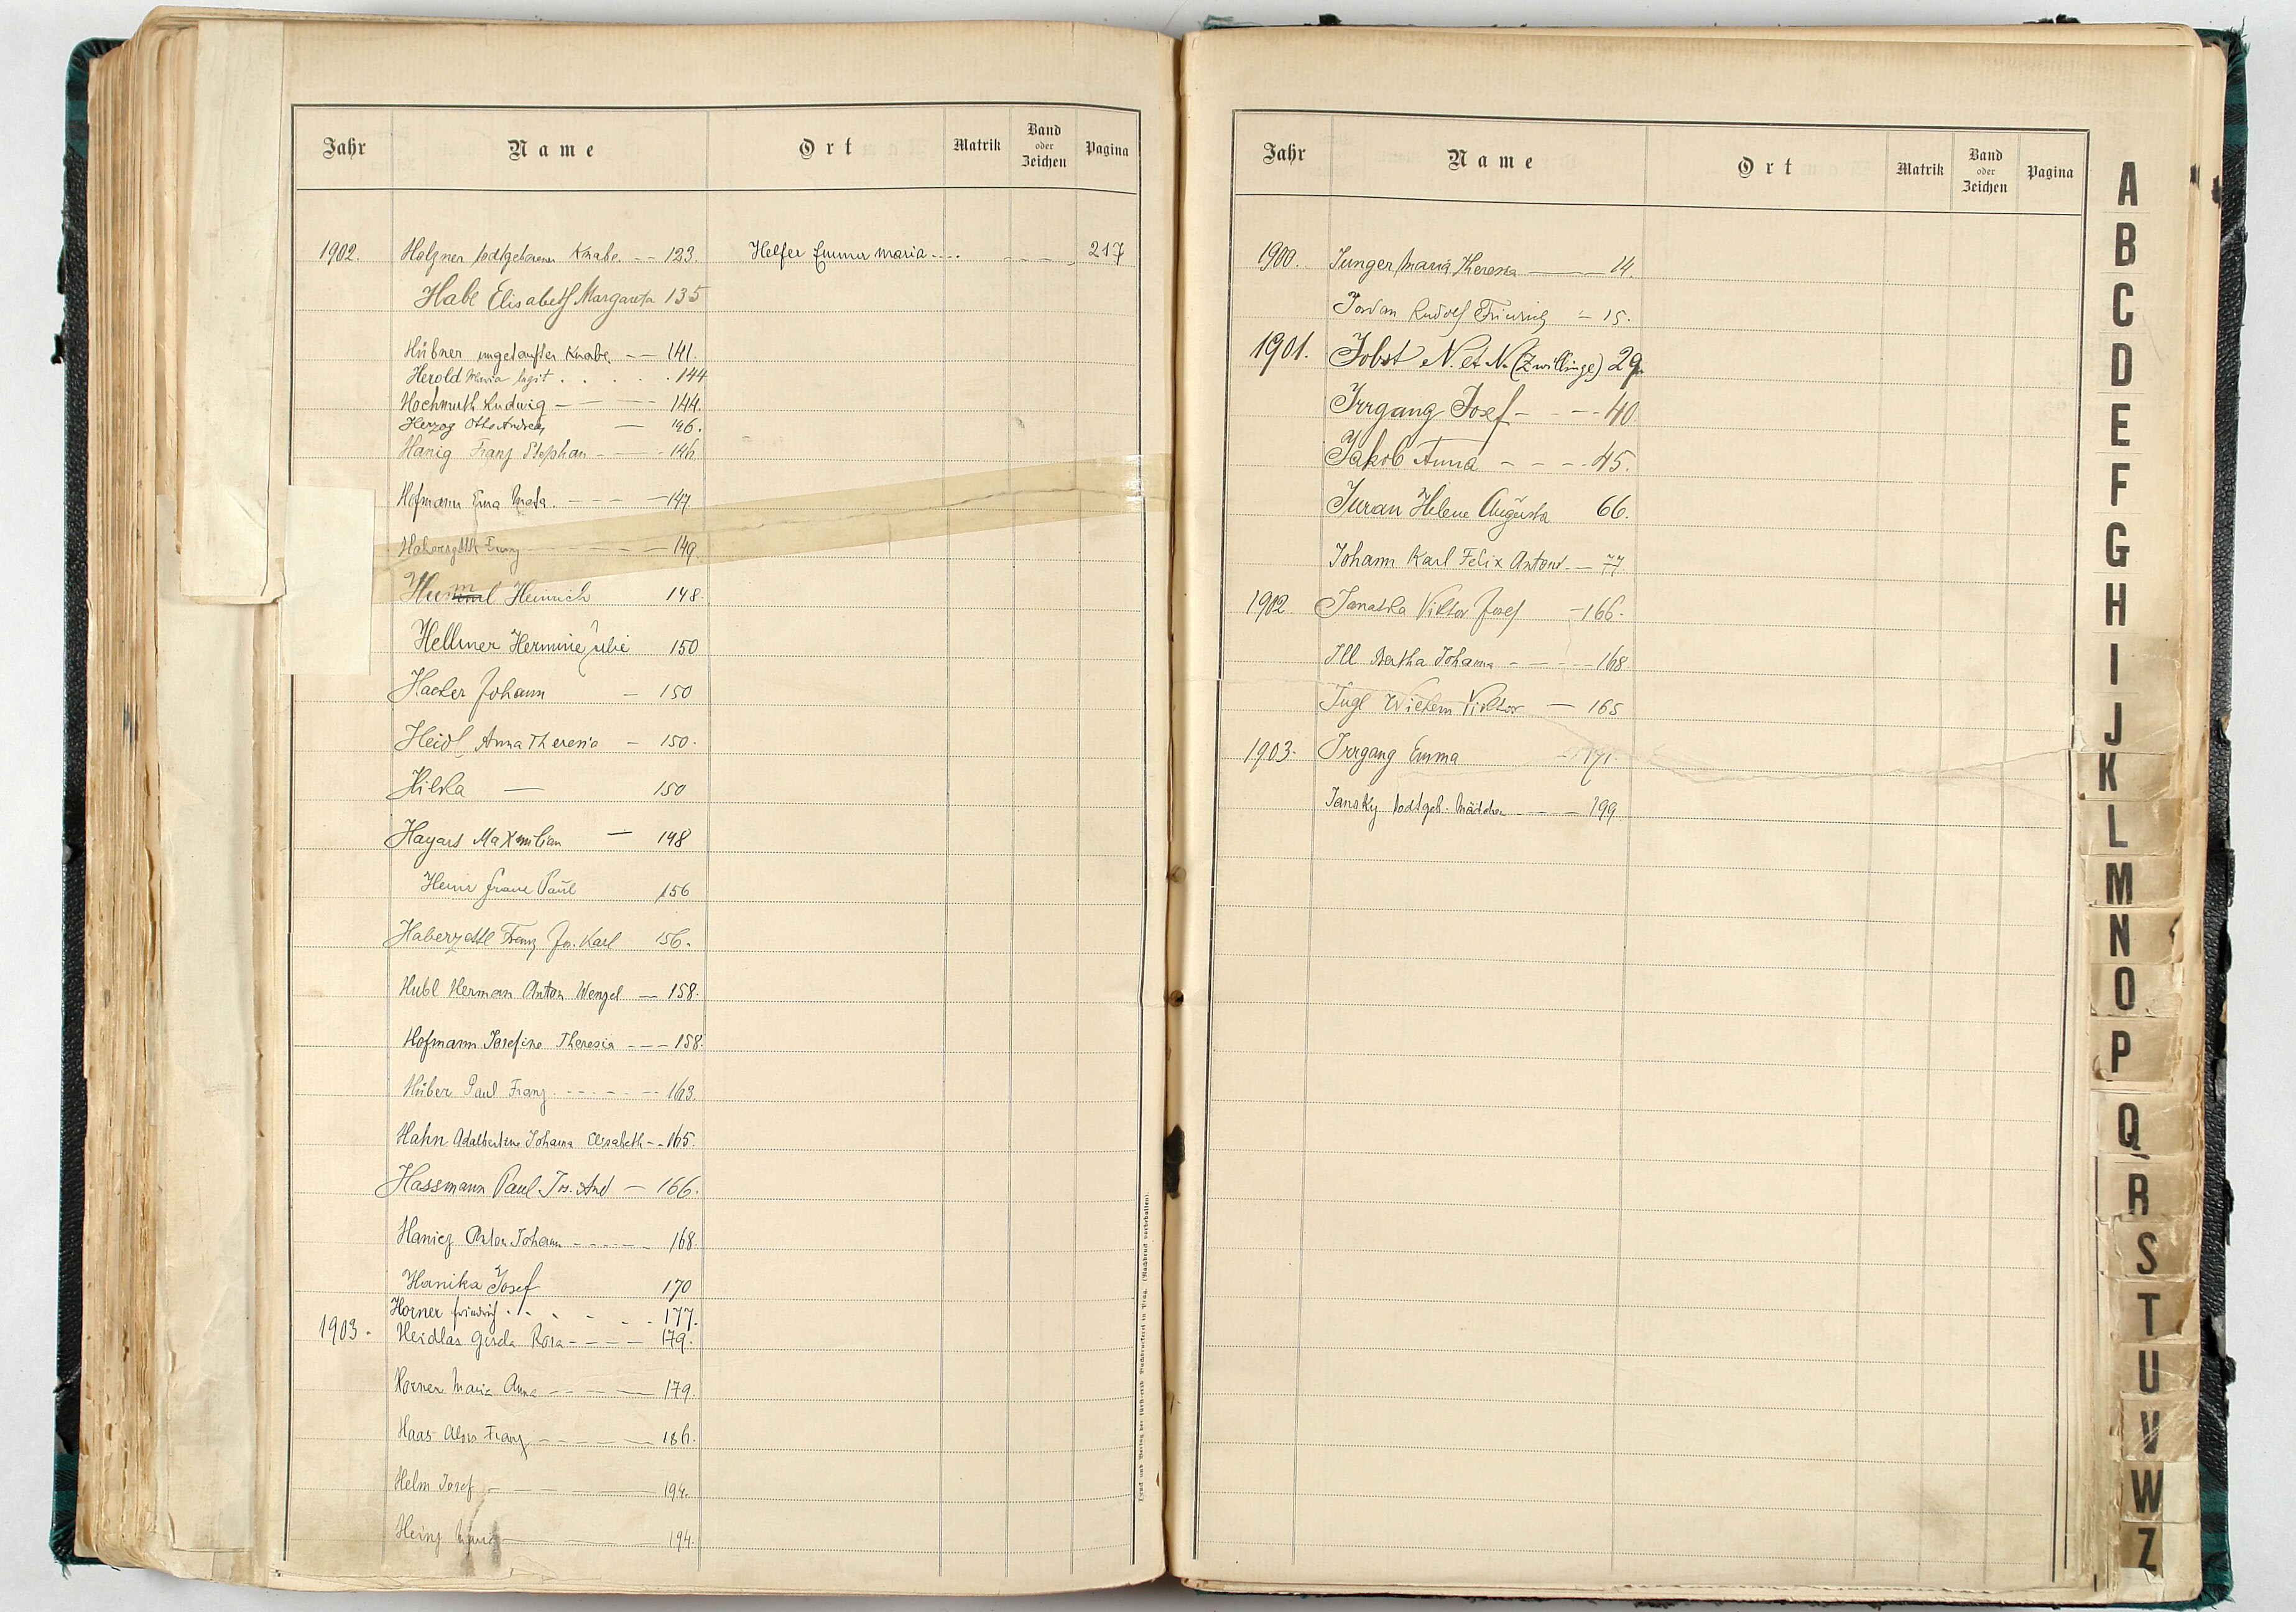 Jahr Name Ort Matrik Band oder Zeichen Pagina
1902. Holzner todtgeborener Knabe. -- 123. Helfer Emma Maria .... 217
Habl Elisabeth Margareta 135
Hübner ungetaufter Knabe. -- 141.
Herold Maria legit . . . . . 144
Hochmuth Ludwig --- 144.
Herzog Otto Andreas — 146.
Hanig Franz Stephan --- 146
Hofmann Erna Marta. --- 147.
Haberzettl Franz --- 149.
Hummel Heinrich 148.
Hellmer Hermine Julie 150
Hacker Johann — 150
Heidl Anna Theresia — 150.
Hilka — 150
Hayars Maxmilian — 148
Heinr Franz Paul 156
Haberzettl Franz Jos. Karl 156.
Hubl Herman Anton Wenzel — 158.
Hofmann Josefine Theresia --- 158.
Hüber Paul Franz. --- 163.
Hahn Adalbertine Johanna Elisabeth -- 165.
Hassmann Paul Jos. And — 166.
Hanicz Anton Johann --- 168.
Hanika Josef 170
Horner Friedrich . . . - . . 177.
1903. Heidlas Gerda Rosa --- 179.
Horner Maria Anna --- 179.
Haas Alois Franz --- 186.
Helm Josef --- 194.
Heinz --- 194.
Druck und Verlag der fürsterzb. Buchdruckerei in Prag. (Nachdruck vorbehalten).
Jahr Name Ort Matrik Band oder Zeichen Pagina
1900. Junger Maria Theresia --- 14.
Jordan Rudolf Friedrich — 15.
1901. Jobst N. et N. (Zwillinge) 29.
Irrgang Josef - - - 40.
Jakob Anna - - - 45.
Juran Helene Augusta 66.
Johann Karl Felix Anton — 77
1902. Janatka Viktor Josef — 166.
Ill Bertha Johanna --- 168.
Jugl Wilhem Viktor — 165
1903. Irrgang Emma — 171.
Jansky todtgeb. Mädchen --- 199
A
B
C
D
E
F
G
H
I
J
K
L
M
N
O
P
Q
R
S
T
U
V
W
Z